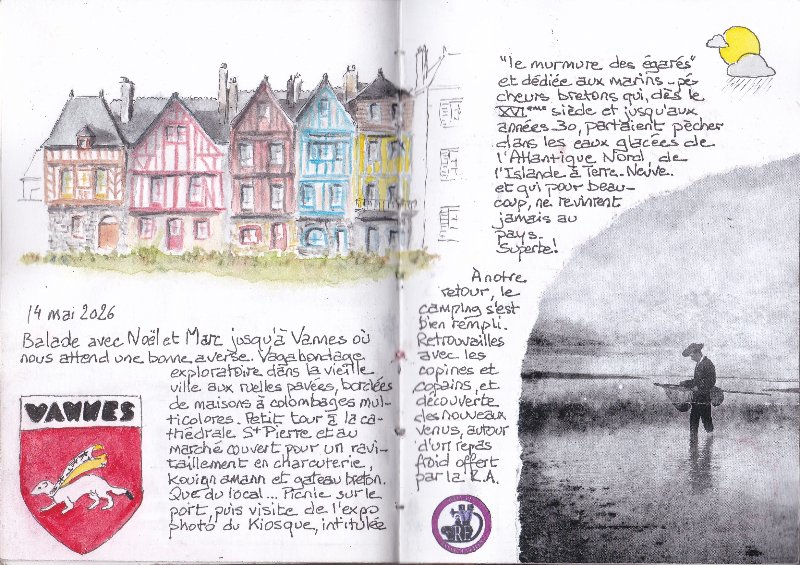 14 mai 2026
Balade avec Noël et Marc jusqu'à Vannes où
nous attend une bonne averse. Vagabondage
exploratoire dans la vieille
ville aux ruelles pavées, bordées
de maisons à colombages mul-
ticolores. Petit tour à la ca-
thédrale St Pierre et au
marché couvert pour un ravi-
taillement en charcuterie,
kouign amann et gateau breton.
Que du local... Picnic sur le
port, puis visite de l'expo
photo du Kiosque, intitulée
VANNES
"le murmure des égarés"
et dédiée aux marins-pê-
cheurs bretons qui, dès le
XVI.ème siède et jusqu'aux
années 30, partaient pêcher
dans les eaux glacées de
l'Atlantique Nord, de
l'Islande à Terre-Neuve.
et qui pour beau-
coup, ne revinrent
jamais au
pays.
Superbe!
A notre
retour, le
camping s'est
bien rempli.
Retrouvailles
avec les
copines et
copains, et
découverte
des nouveaux
venus, autour
d'un repas
froid offert
par la R.A.